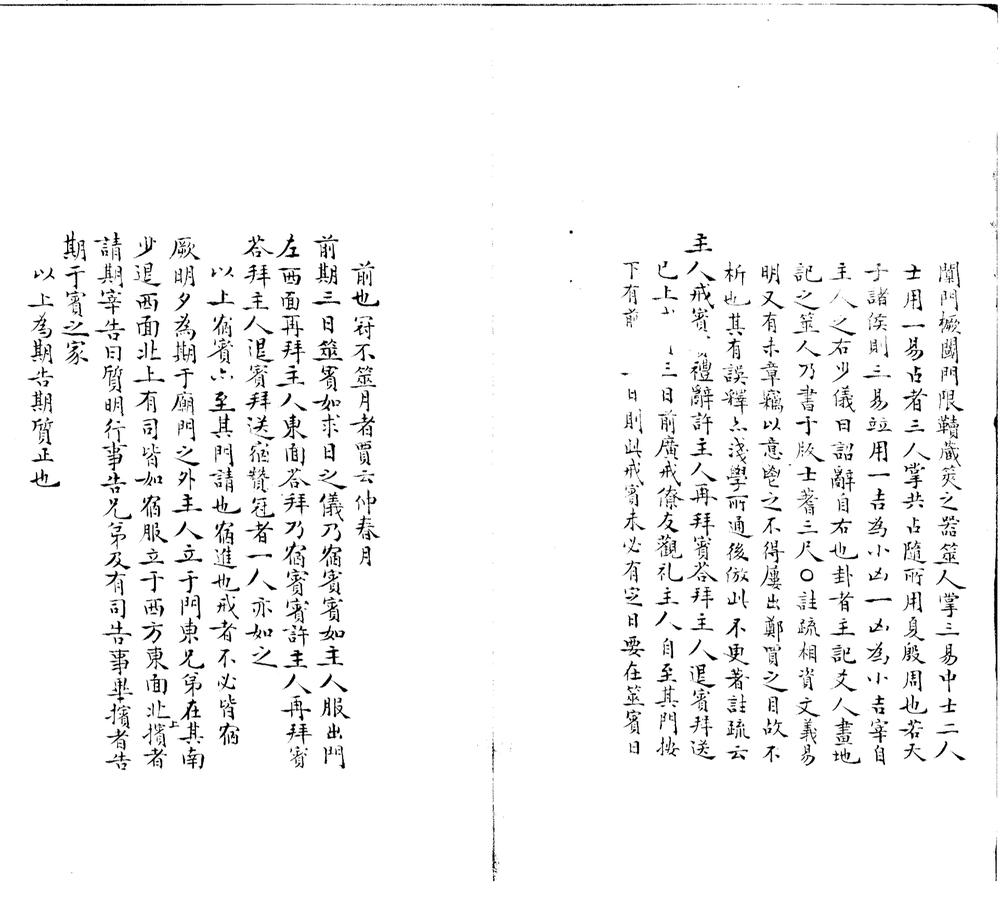 闑門橛閾門限韇藏筴之器筮人掌三易中士二人
士用一易占者三人掌共占隨所用夏殷周也若天
子諸侯則三易竝用一吉為小凶一凶為小吉宰自
主人之右少儀曰詔辭自右也卦者主記爻人畫地
記之筮人乃書于版士蓍三尺〇註疏相資文義易
明又有未章竊以意 之不得屢出鄭賈之目故不
析也其有誤釋亦淺學所通後倣此不更著註疏云
主人戒賓 禮辭許主人再拜賓荅拜主人退賓拜送
已上 三日前廣戒僚友觀礼主人自至其門按
下有前 日則此戒賓未必有定日要在筮賓日
前也冠不筮月者賈云仲春月
前期三日筮賓如求日之儀乃宿賓賓如主人服出門
左西面再拜主人東面荅拜乃宿賓賓許主人再拜賓
荅拜主人退賓拜送宿贊冠者一人亦如之
以上宿賓亦至其門請也宿進也戒者不必皆宿
厥明夕為期于廟門之外主人立于門東兄弟在其南
少退西面北上有司皆如宿服立于西方東面北上擯者
請期宰告曰質明行事告兄弟及有司告事畢擯者告
期于賓之家
以上為期告期質正也